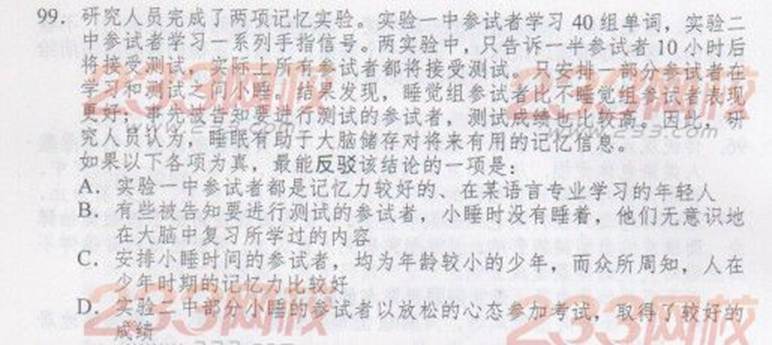 99. 研究人员完成了两项记忆实验。实验一中参试者学习 40 组单词，实验二
中参试者学习一系列手指信号。两实验中，只告诉一半参试者 10 小时后
将接受测试，实际上所有参试者都将接受测试。只安排一部分参试者在
学习和测试之间小睡。结果发现，睡觉组参试者比不睡觉组参试者表现
更好；事先被告知要进行测试的参试者，测试成绩也比较高。因此，研
究人员认为，睡眠有助于大脑储存对将来有用的记忆信息。
如果以下各项为真，最能反驳该结论的一项是：
A. 实验一中参试者都是记忆力较好的、在某语言专业学习的年轻人
B. 有些被告知要进行测试的参试者，小睡时没有睡着，他们无意识地
在大脑中复习所学过的内容
C. 安排小睡时间的参试者，均为年龄较小的少年，而众所周知，人在
少年时期的记忆力比较好
D. 实验二中部分小睡的参试者以放松的心态参加考试，取得了较好的
成绩
233网校
233网校
www.233.com
www.233.com
233网校
233网校